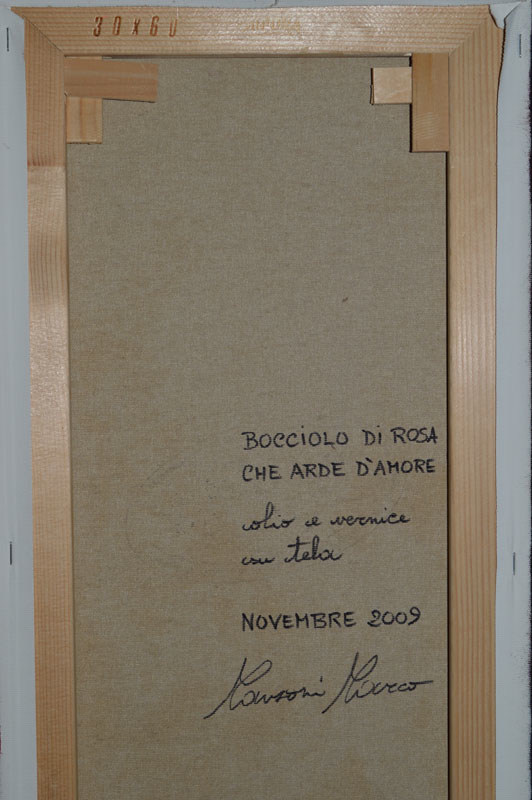 30x60
BOCCIOLO DI ROSA
CHE ARDE D'AMORE
olio e vernice
su tela
NOVEMBRE 2009
Mansoni Marco